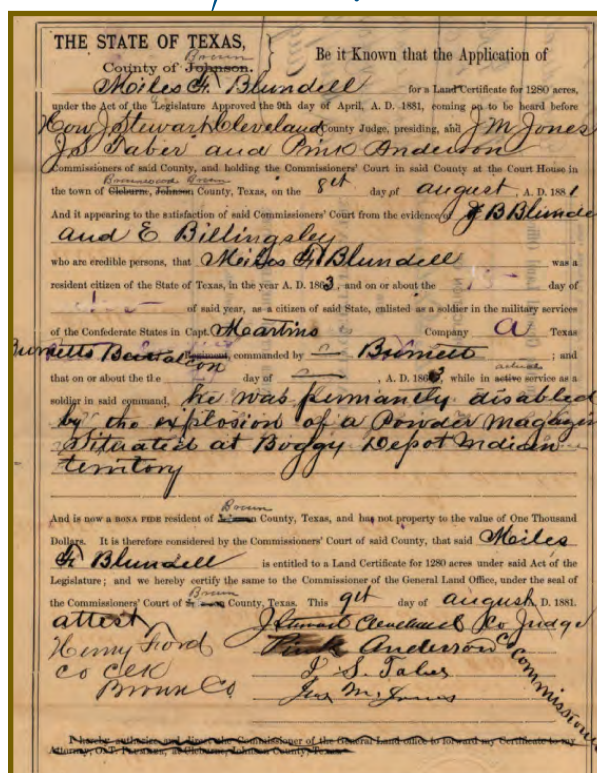 THE STATE OF TEXAS, Be it Known that the Application of
Brown
County of Johnson.
Miles F. Blundell for a Land Certificate for 1280 acres,
under the Act of the Legislature Approved the 9th day of April, A. D. 1881, coming on to be heard before
Hon J Stewart Cleveland County Judge, presiding, and J M Jones
J S Taber and Pink Anderson
Commissioners of said County, and holding the Commissioners' Court in said County at the Court House in
Brownwood Brown
the town of Cleburne, Johnson County, Texas, on the 8et day of august, A. D. 1881
And it appearing to the satisfaction of said Commissioners' Court from the evidence of J B Blunde
and E Billingsley
who are credible persons, that Miles F. Blundell was a
resident citizen of the State of Texas, in the year A. D. 1863, and on or about the 15 day of
of said year, as a citizen of said State, enlisted as a soldier in the military services
of the Confederate States in Capt. Martins Company A Texas
Burnetts Battalion Regiment, commanded by Burnett ; and
that on or about the day of , A. D. 1863, while in
actual
active service as a
soldier in said command, he was permantly disabled
by the explosion of a Powder magazin
Siturated at Boggy Depot Indian
territory
Brown
And is now a BONA FIDE resident of County, Texas, and has not property to the value of One Thousand
Dollars. It is therefore considered by the Commissioners' Court of said County, that said Miles
F. Blundell is entitled to a Land Certificate for 1280 acres under said Act of the
Legislature; and we hereby certify the same to the Commissioner of the General Land Office, under the seal of
Brown
the Commissioners' Court of County, Texas. This 9et day of august, D. 1881.
attest J Stewart Cleveland Co Judge
Henry Ford Pink Anderson
Co Clk J. S. Taber
Brown Co Jas M. Jones
Co Commissione
I hereby authorize and direct the Commissioner of the General Land office to forward my Certificate to my
Attorney, at Cleburne, Johnson County, Texas